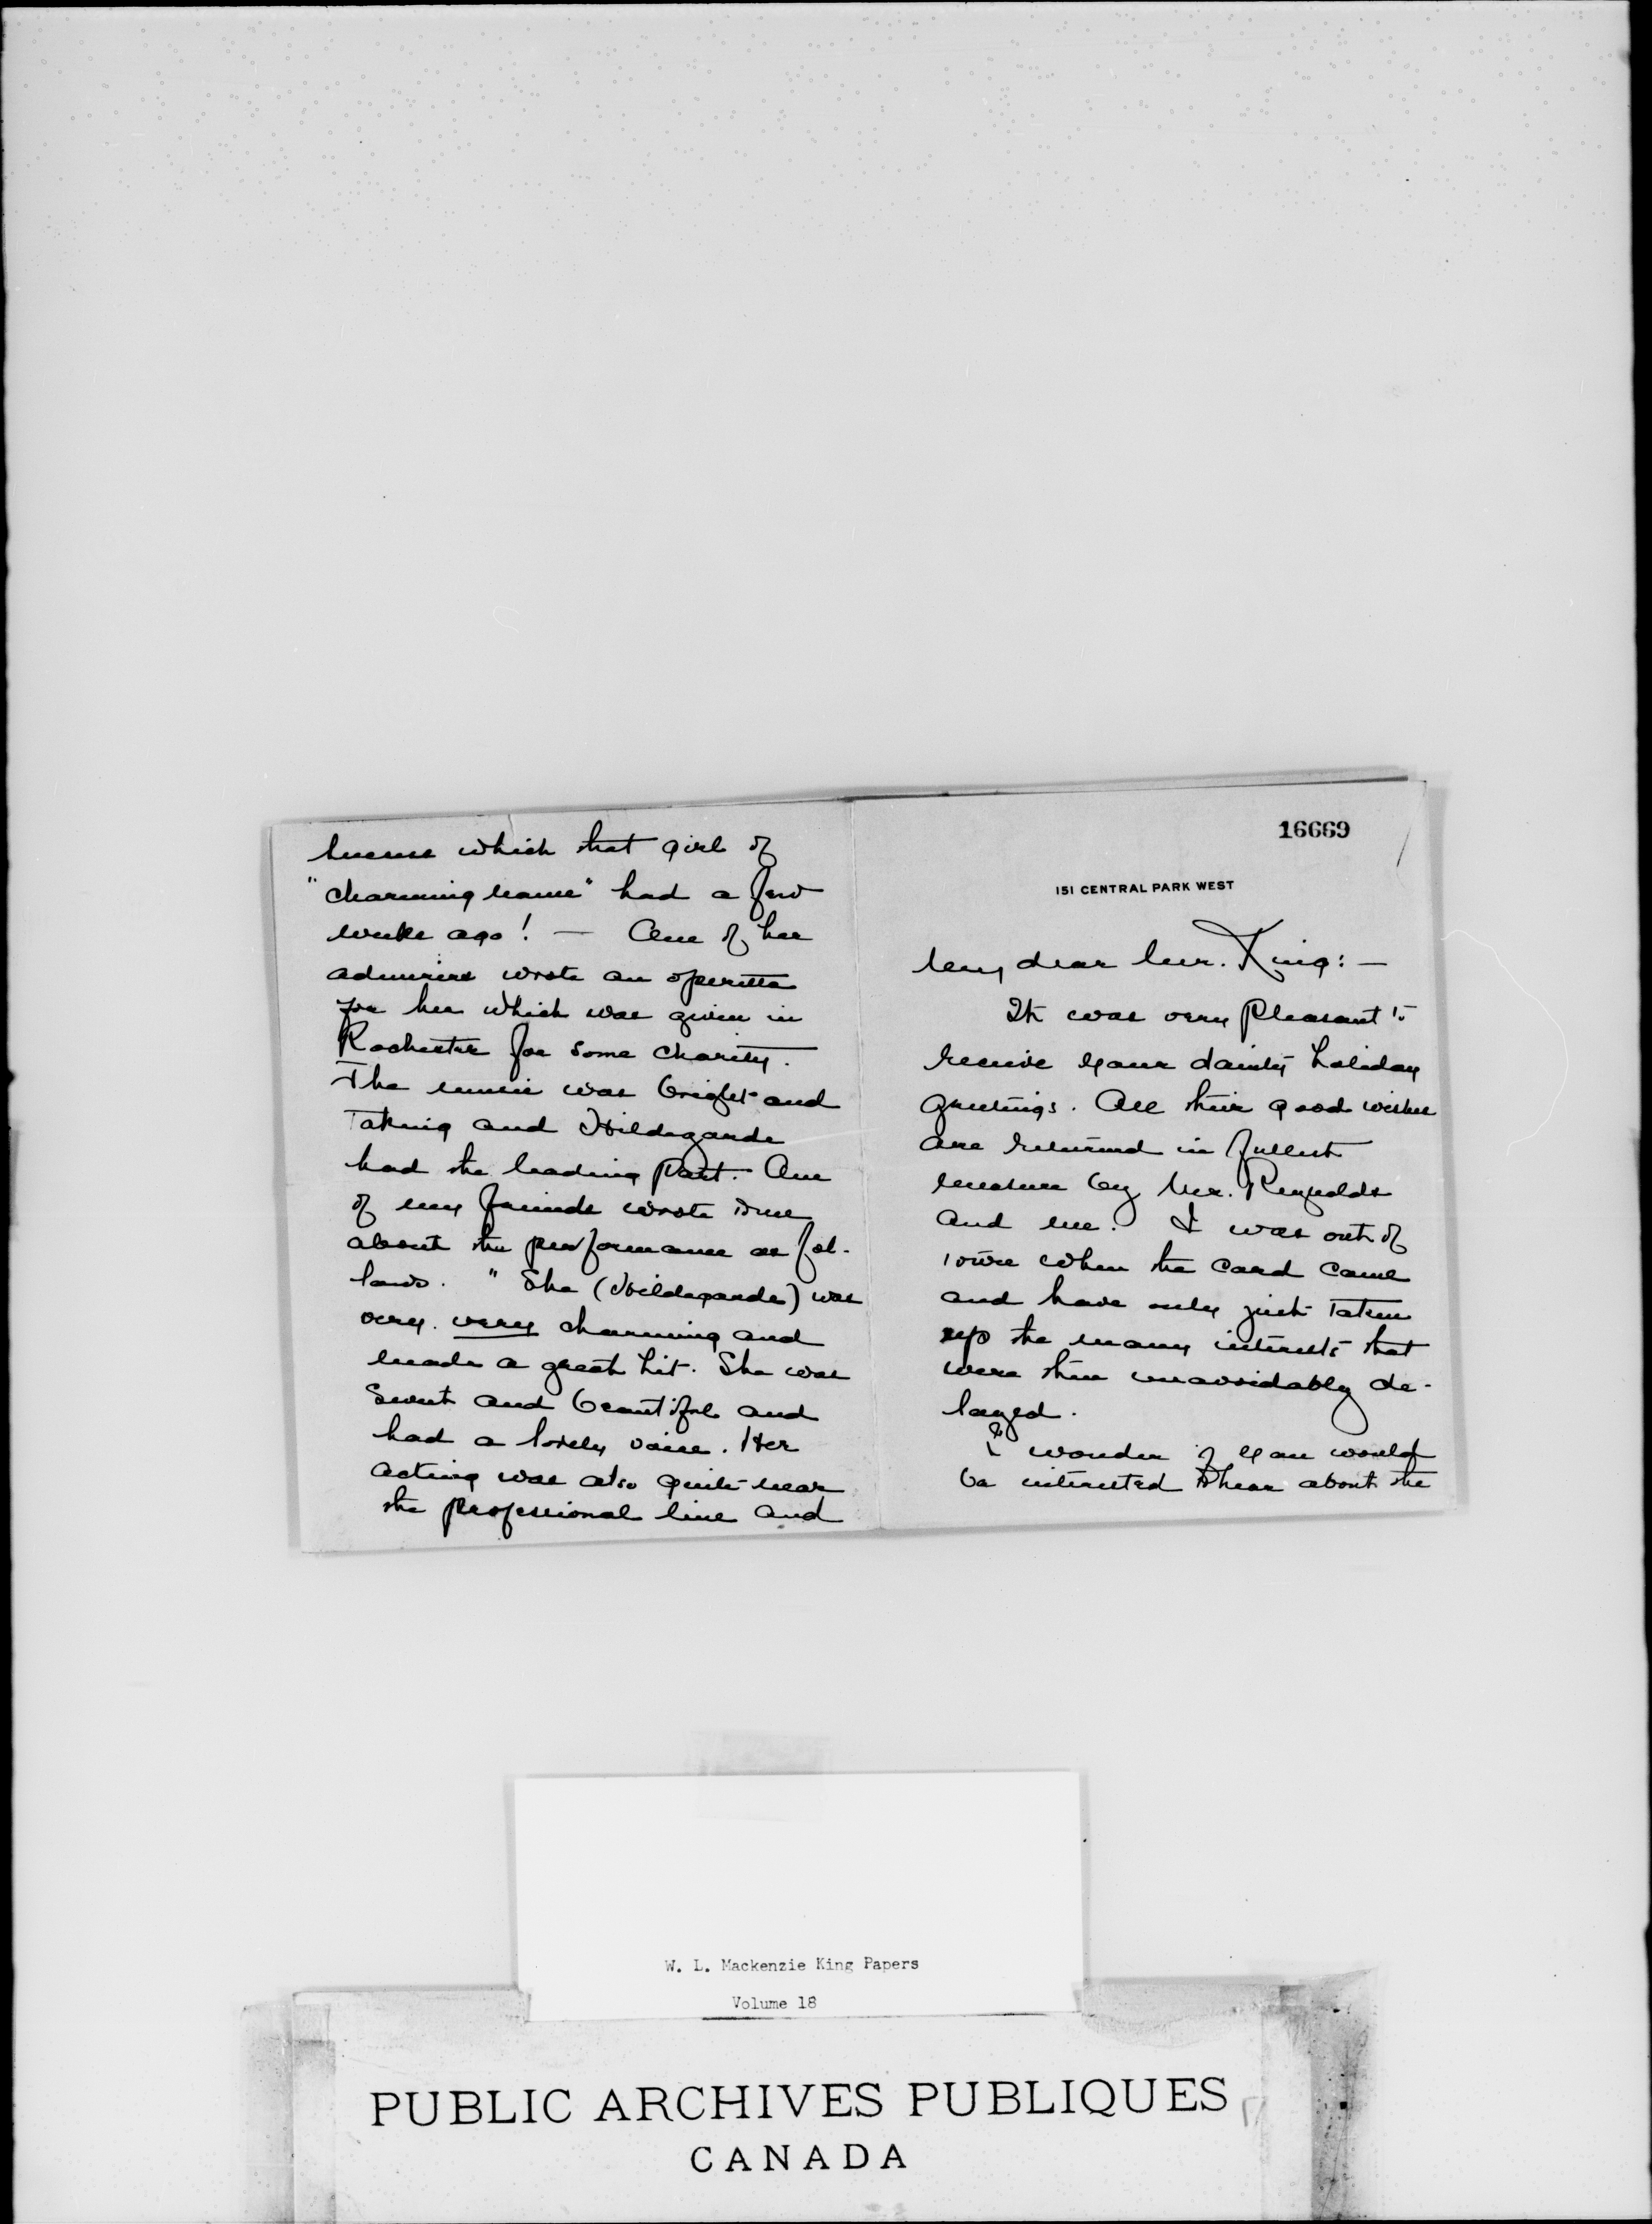 16669
151 CENTRAL PARK WEST
My dear Mr. King: —
It was very pleasant to
receive your dainty holiday
greetings. All their good wishes
are returned in fullest
measure by Mr. Reynolds
and me. I was out of
town when the card came
and have only just taken
up the many interests that
were then unavoidably de-
layed.
I wonder if you would
be interested to hear about the
which that girl of
"charming name" had a few
weeks ago! — One of her
admirers wrote an operetta
for her which was given in
Rochester for some charity.
The music was bright and
taking and Hildegarde
had the leading part. One
of my friends wrote me
about the performance as fol-
lows. "She (Hildegarde) was
very. very charming and
made a great hit. She was
sweet and beautiful and
had a lovely voice. Her
acting was also quite near
the professional line and
W. L. Mackenzie King Papers
Volume 18
PUBLIC ARCHIVES PUBLIQUES
CANADA